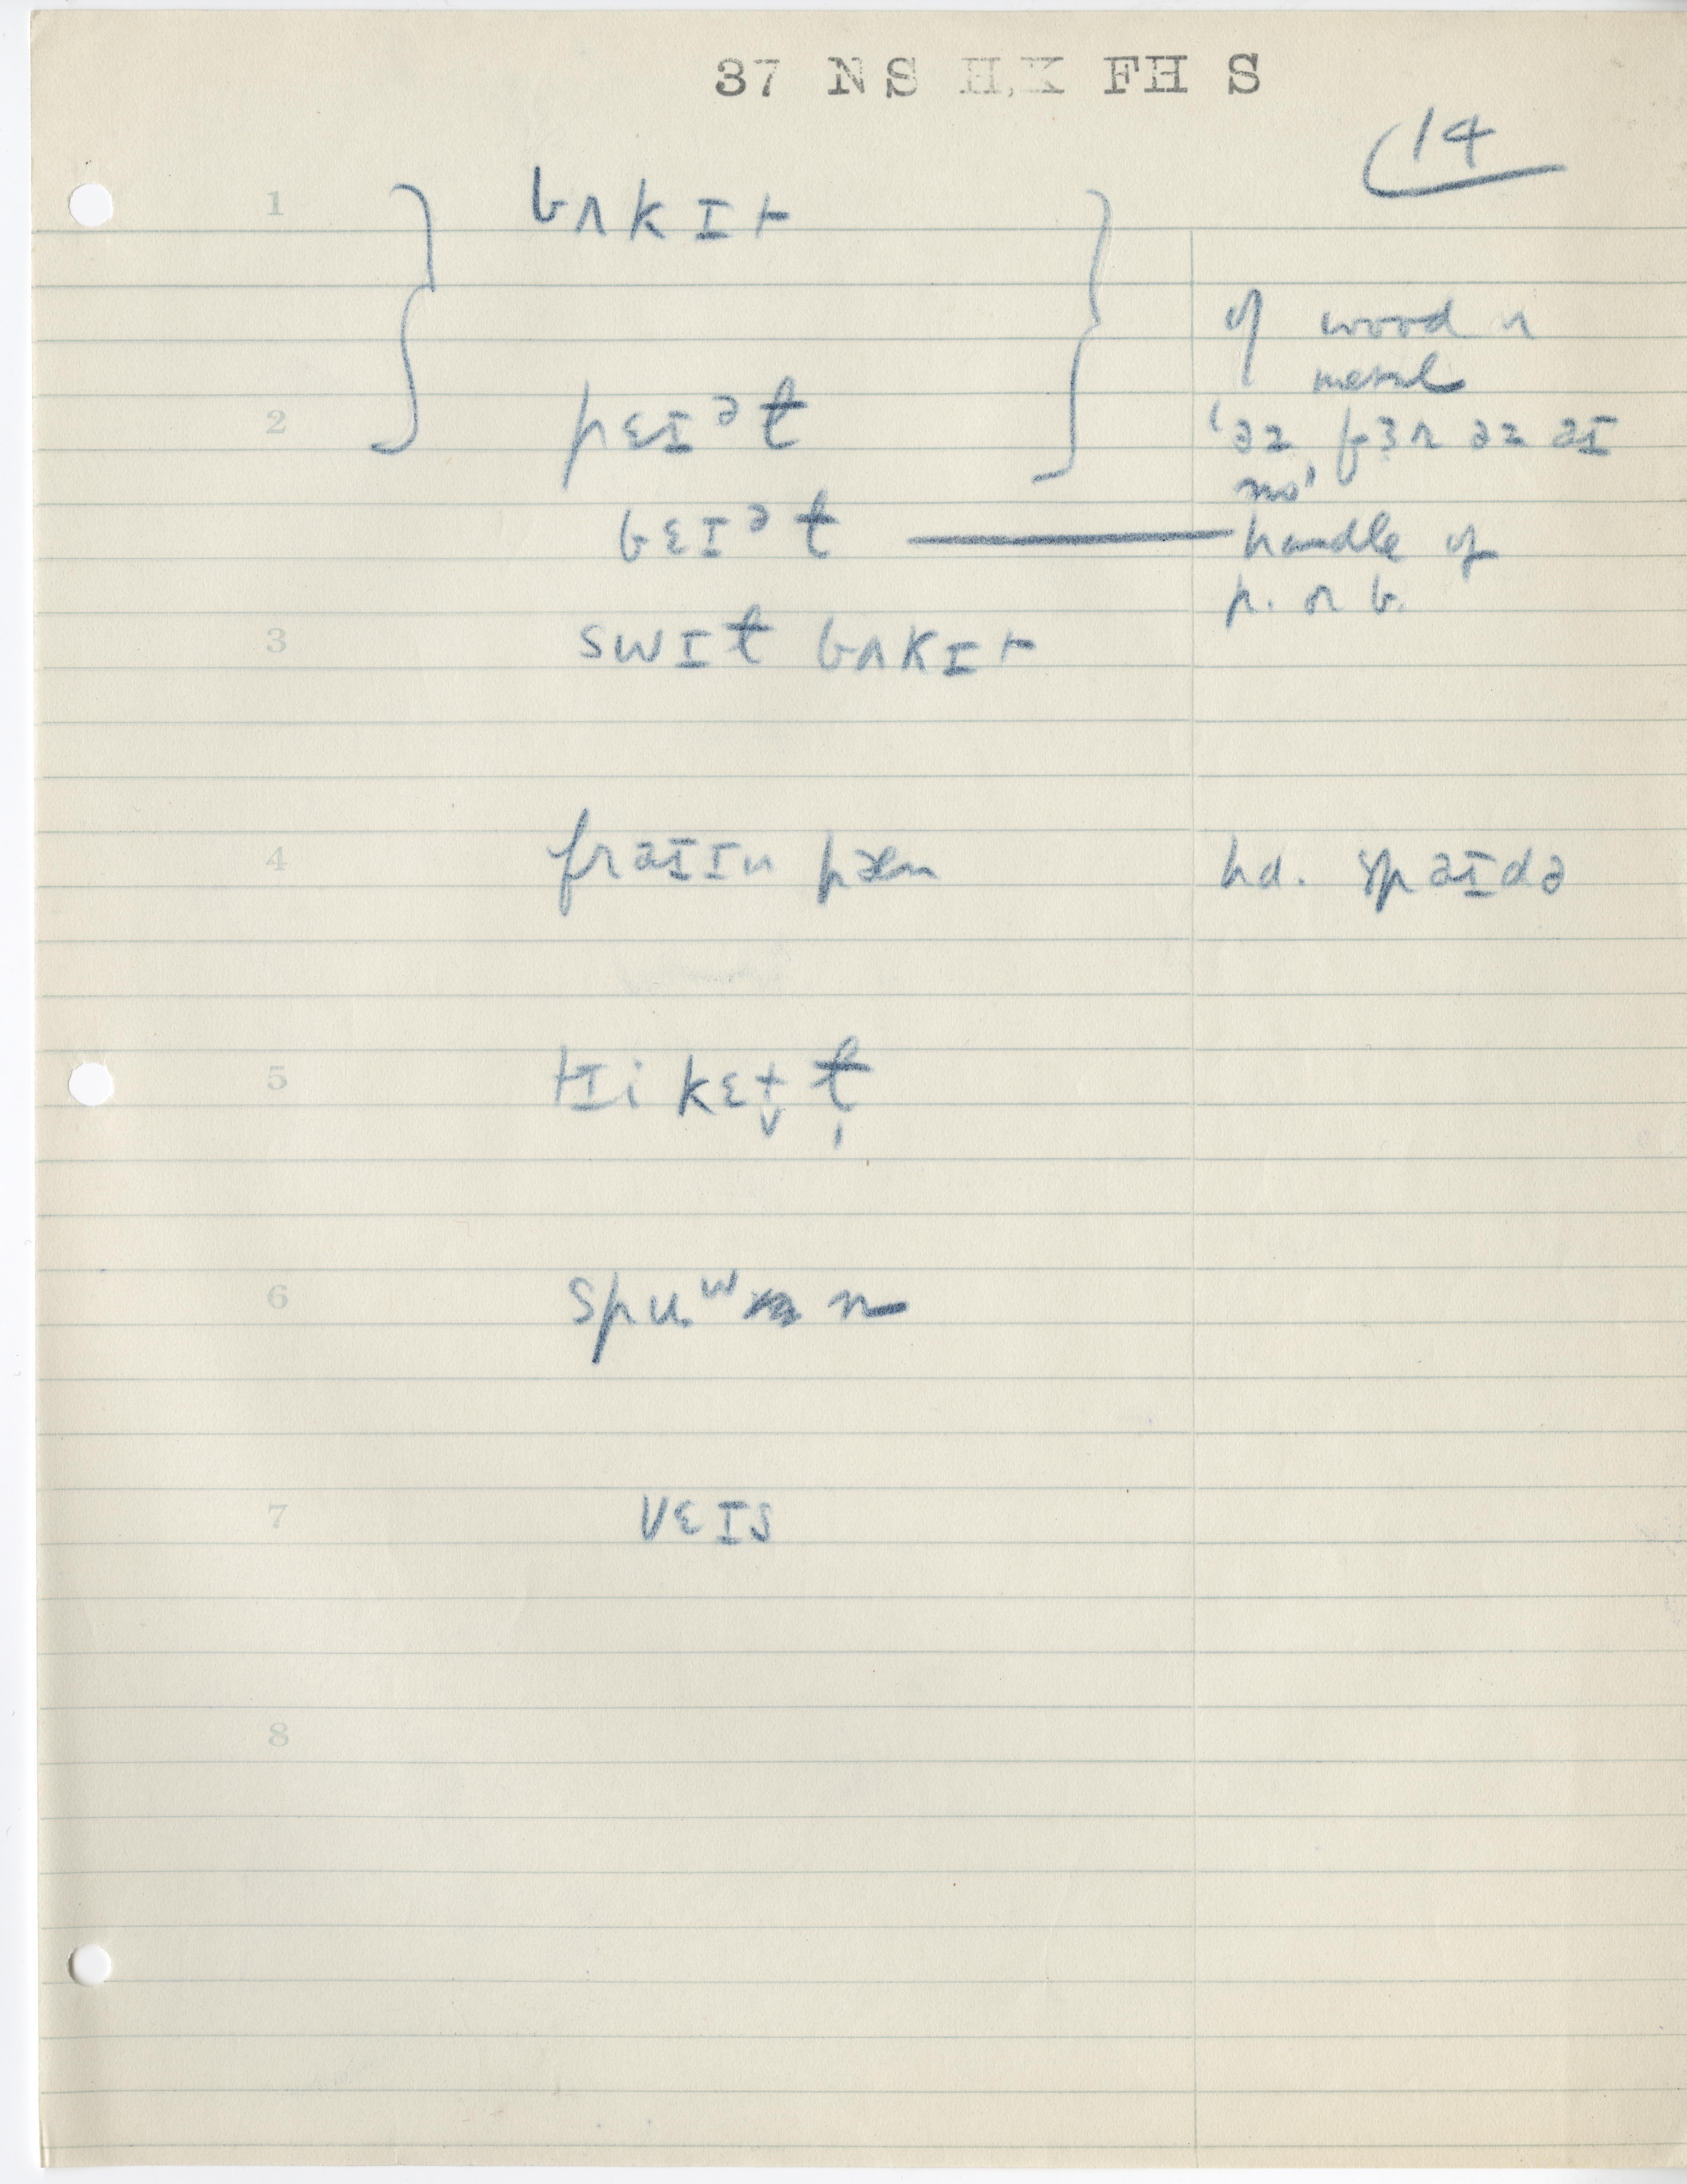 37 NS H.K FH S
14
1 bʌkɪt
of wood or
metal
2 pɛɪᵊɫ
'əz fɜr əz aɪ
no'
bɛɪᵊɫ — handle of
p. or b.
3 swɪɫ bʌkɪt
4 fraɪɪn pæn hd. spaɪdə
5 tɪi kɛt̬ɫ̩
6 spuʷn
7 vɛɪs
8